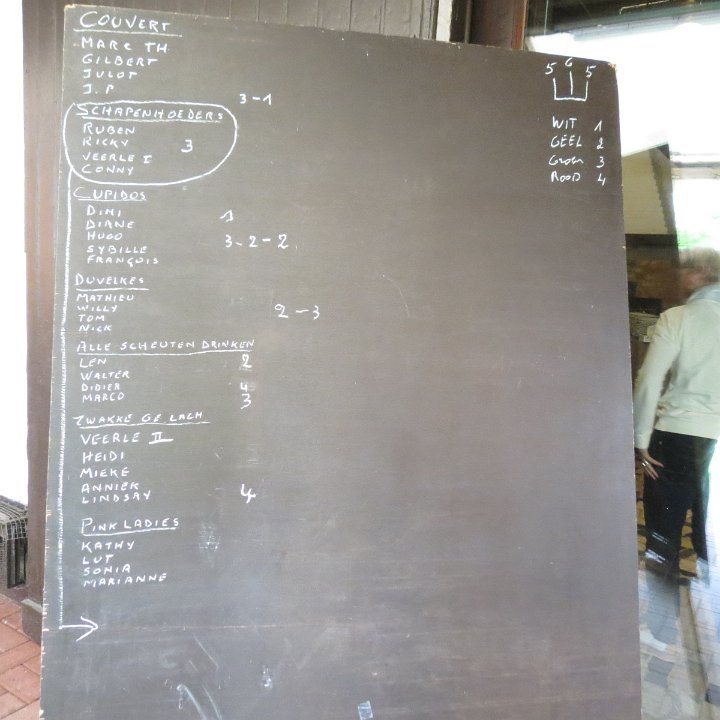 COUVERT
MARC TH
GILBERT
JULOT
J.P
3-1
SCHAPENHOEDERS
RUBEN
RICKY 3
VEERLE I
CONNY
CUPIDOS
DIMI 1
DIANE
HUGO 3-2-2
SYBILLE
FRANÇOIS
DUVELKES
MATHIEU
WILLY 2-3
TOM
NICK
ALLE SCHEUTEN DRINKEN
LEN 2
WALTER
DIDIER 4
MARCO 3
ZWAKKE GE LACH
VEERLE II
HEIDI
MIEKE
ANNIEK
LINDSAY 4
PINK LADIES
KATHY
LUT
SONIA
MARIANNE
5 6 5
WIT 1
GEEL 2
GROEN 3
ROOD 4